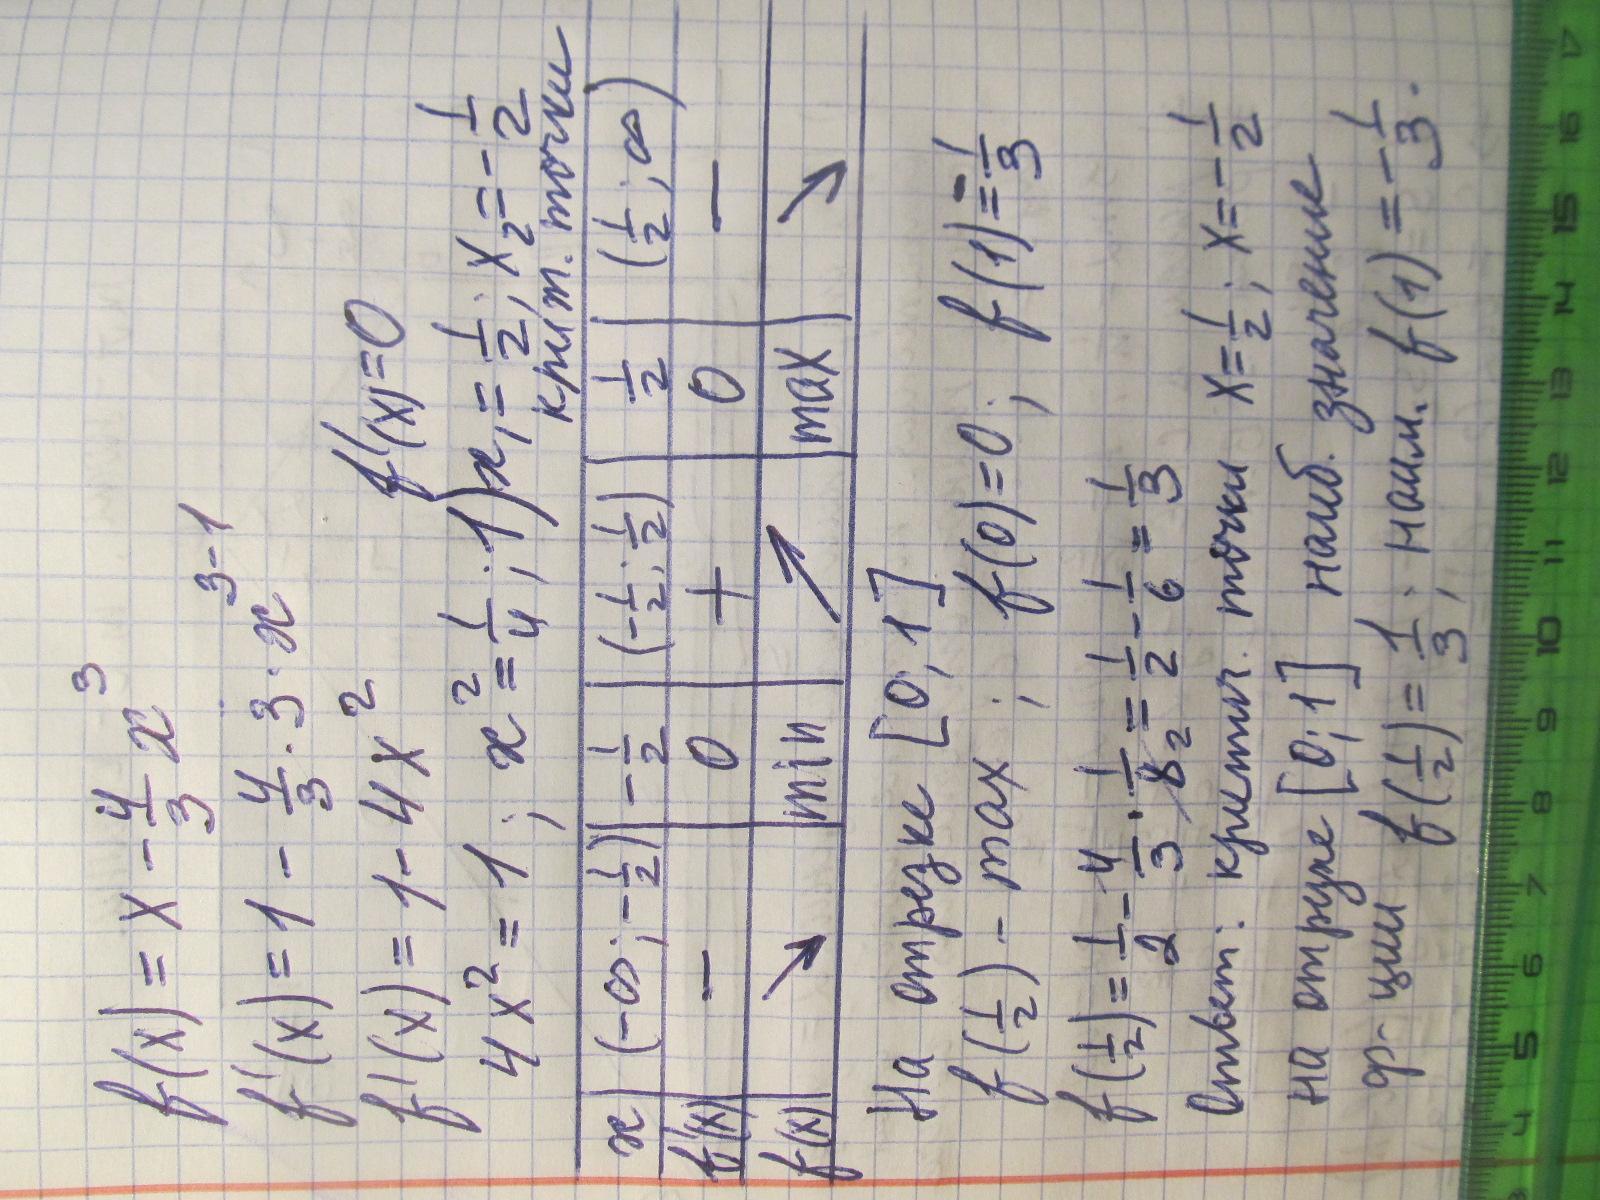 f(x) = x - 4/3 x³
f'(x) = 1 - 4/3 · 3 · x³⁻¹
f'(x) = 1 - 4x² f'(x) = 0
4x² = 1 ; x² = 1/4 ; 1) x₁ = 1/2 ; x₂ = - 1/2
крит. точки
x (-∞; -1/2) -1/2 (-1/2; 1/2) 1/2 (1/2; ∞)
f'(x) - 0 + 0 -
f(x) ↘ min ↗ max ↘
На отрезке [0; 1]
f(1/2) - max ; f(0) = 0 ; f(1) = -1/3
f(1/2) = 1/2 - 4/3 · 1/8₂ = 1/2 - 1/6 = 1/3
Ответ: критич. точки x = 1/2 ; x = - 1/2
на отрезке [0; 1] наиб. значение
ф-ции f(1/2) = 1/3 ; наим. f(1) = - 1/3.
4 5 6 7 8 9 10 11 12 13 14 15 16 17